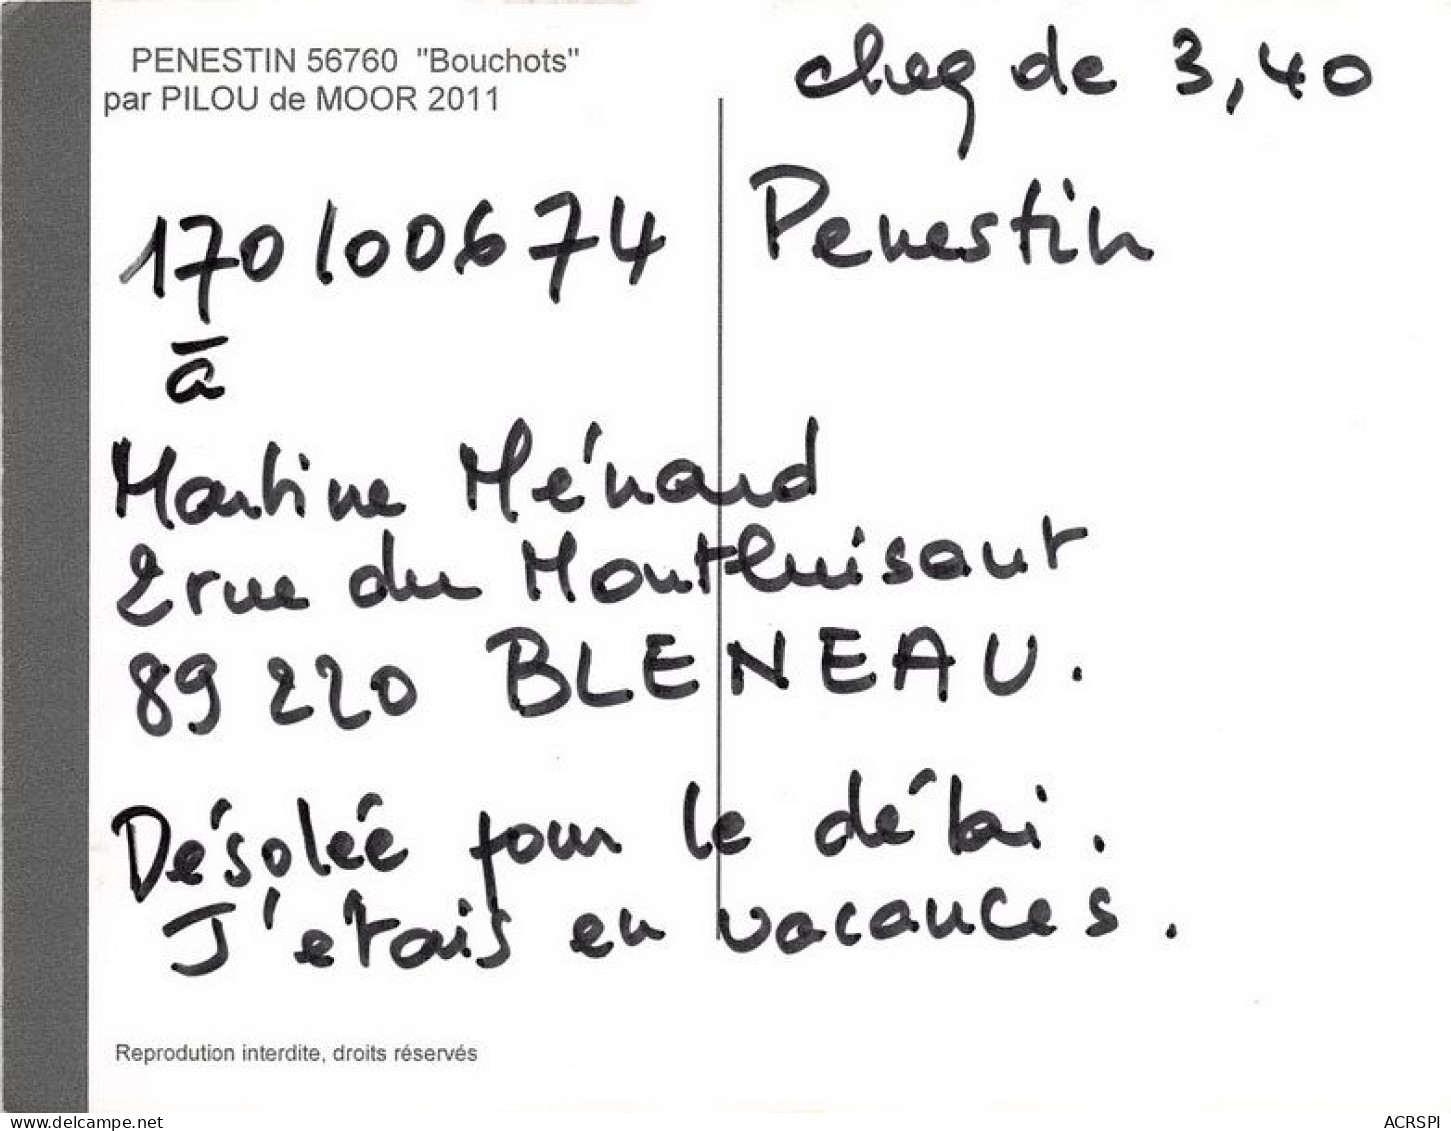 PENESTIN 56760 "Bouchots"
par PILOU de MOOR 2011
cheq de 3,40
Penestin
170100674
à
Martine Ménard
2 rue du Montluisant
89220 BLENEAU.
Désolée pour le délai.
J'etais en vacances.
Reprodution interdite, droits réservés
www.delcampe.net
ACRSPI